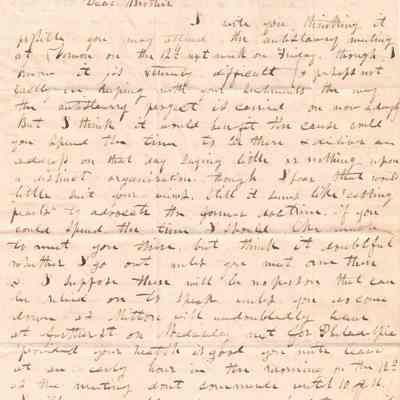 Dear Brother
I write you thinking it
possible you may attend the antislavery meeting
at on the 12th next week on Friday. though I
know it is very difficult & perhaps not
in keeping with your sentiments the way
the antislavery project is carried on now days
But I think it would benefit the cause could
you spend the time to be there & deliver an
address on that day saying little or nothing upon
a distinct organization. though I fear that would
little suit your mind. Still it seems like casting
pearls to advocate the former doctrine. If you
could spend the time I should like much
to meet you there. but think it doubtful
whether I go out unless you meet me there
as I suppose there will be no person that can
be relied on to speak unless you
down as will undoubtedly leave
at on Wednesday next for Philadelphia
provided your health is good you must leave
at an early hour in the morning on the 12th
as the meeting dont commence until 10 A.M.